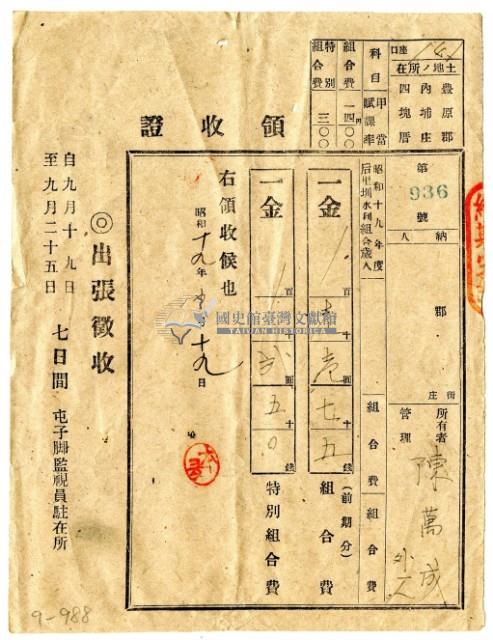 口座
土地ノ所在
豊原郡
內埔庄
四塊厝
科目
甲當賦課率
組合費
一四円〇〇
特別組合費
三〇〇
領收證
第936號
納人
郡
街庄
所有者
管理
陳萬成
外一人
昭和十九年度
后里圳水利組合歲入
組合費
組合費
一金
百十圓十錢
壱七五
(前期分)
組合費
一金
百十圓十錢
弍五0
特別組合費
右領收候也
昭和十九年
十九日
◎出張徵收
自九月十九日
至九月二十五日
七日間
屯子脚監視員駐在所
國史館臺灣文獻館
TAIWAN HISTORICA
9-988